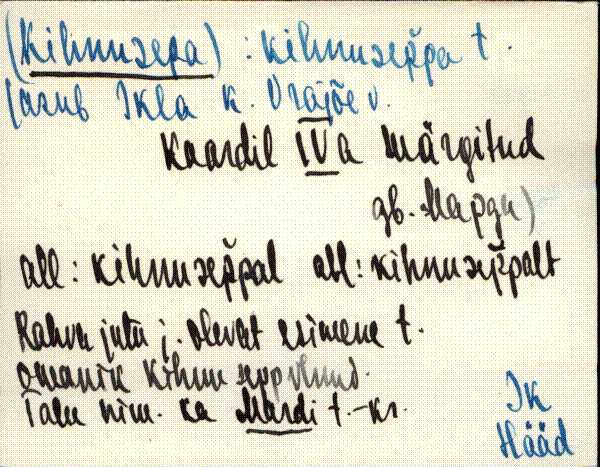 (Kihnusepa) : kihnusep̆pa t.
(asub Ikla k. Orajõe v.
Kaardil IVa märgitud
дв. Марди)
all : kihnusep̆pal abl : kihnusep̆palt
Rahva jutu j. olevat esimene t.
omanik Kihnu sepp olnud.
Talu nim. ka Mardi t. - kr.
Ik
Hääd